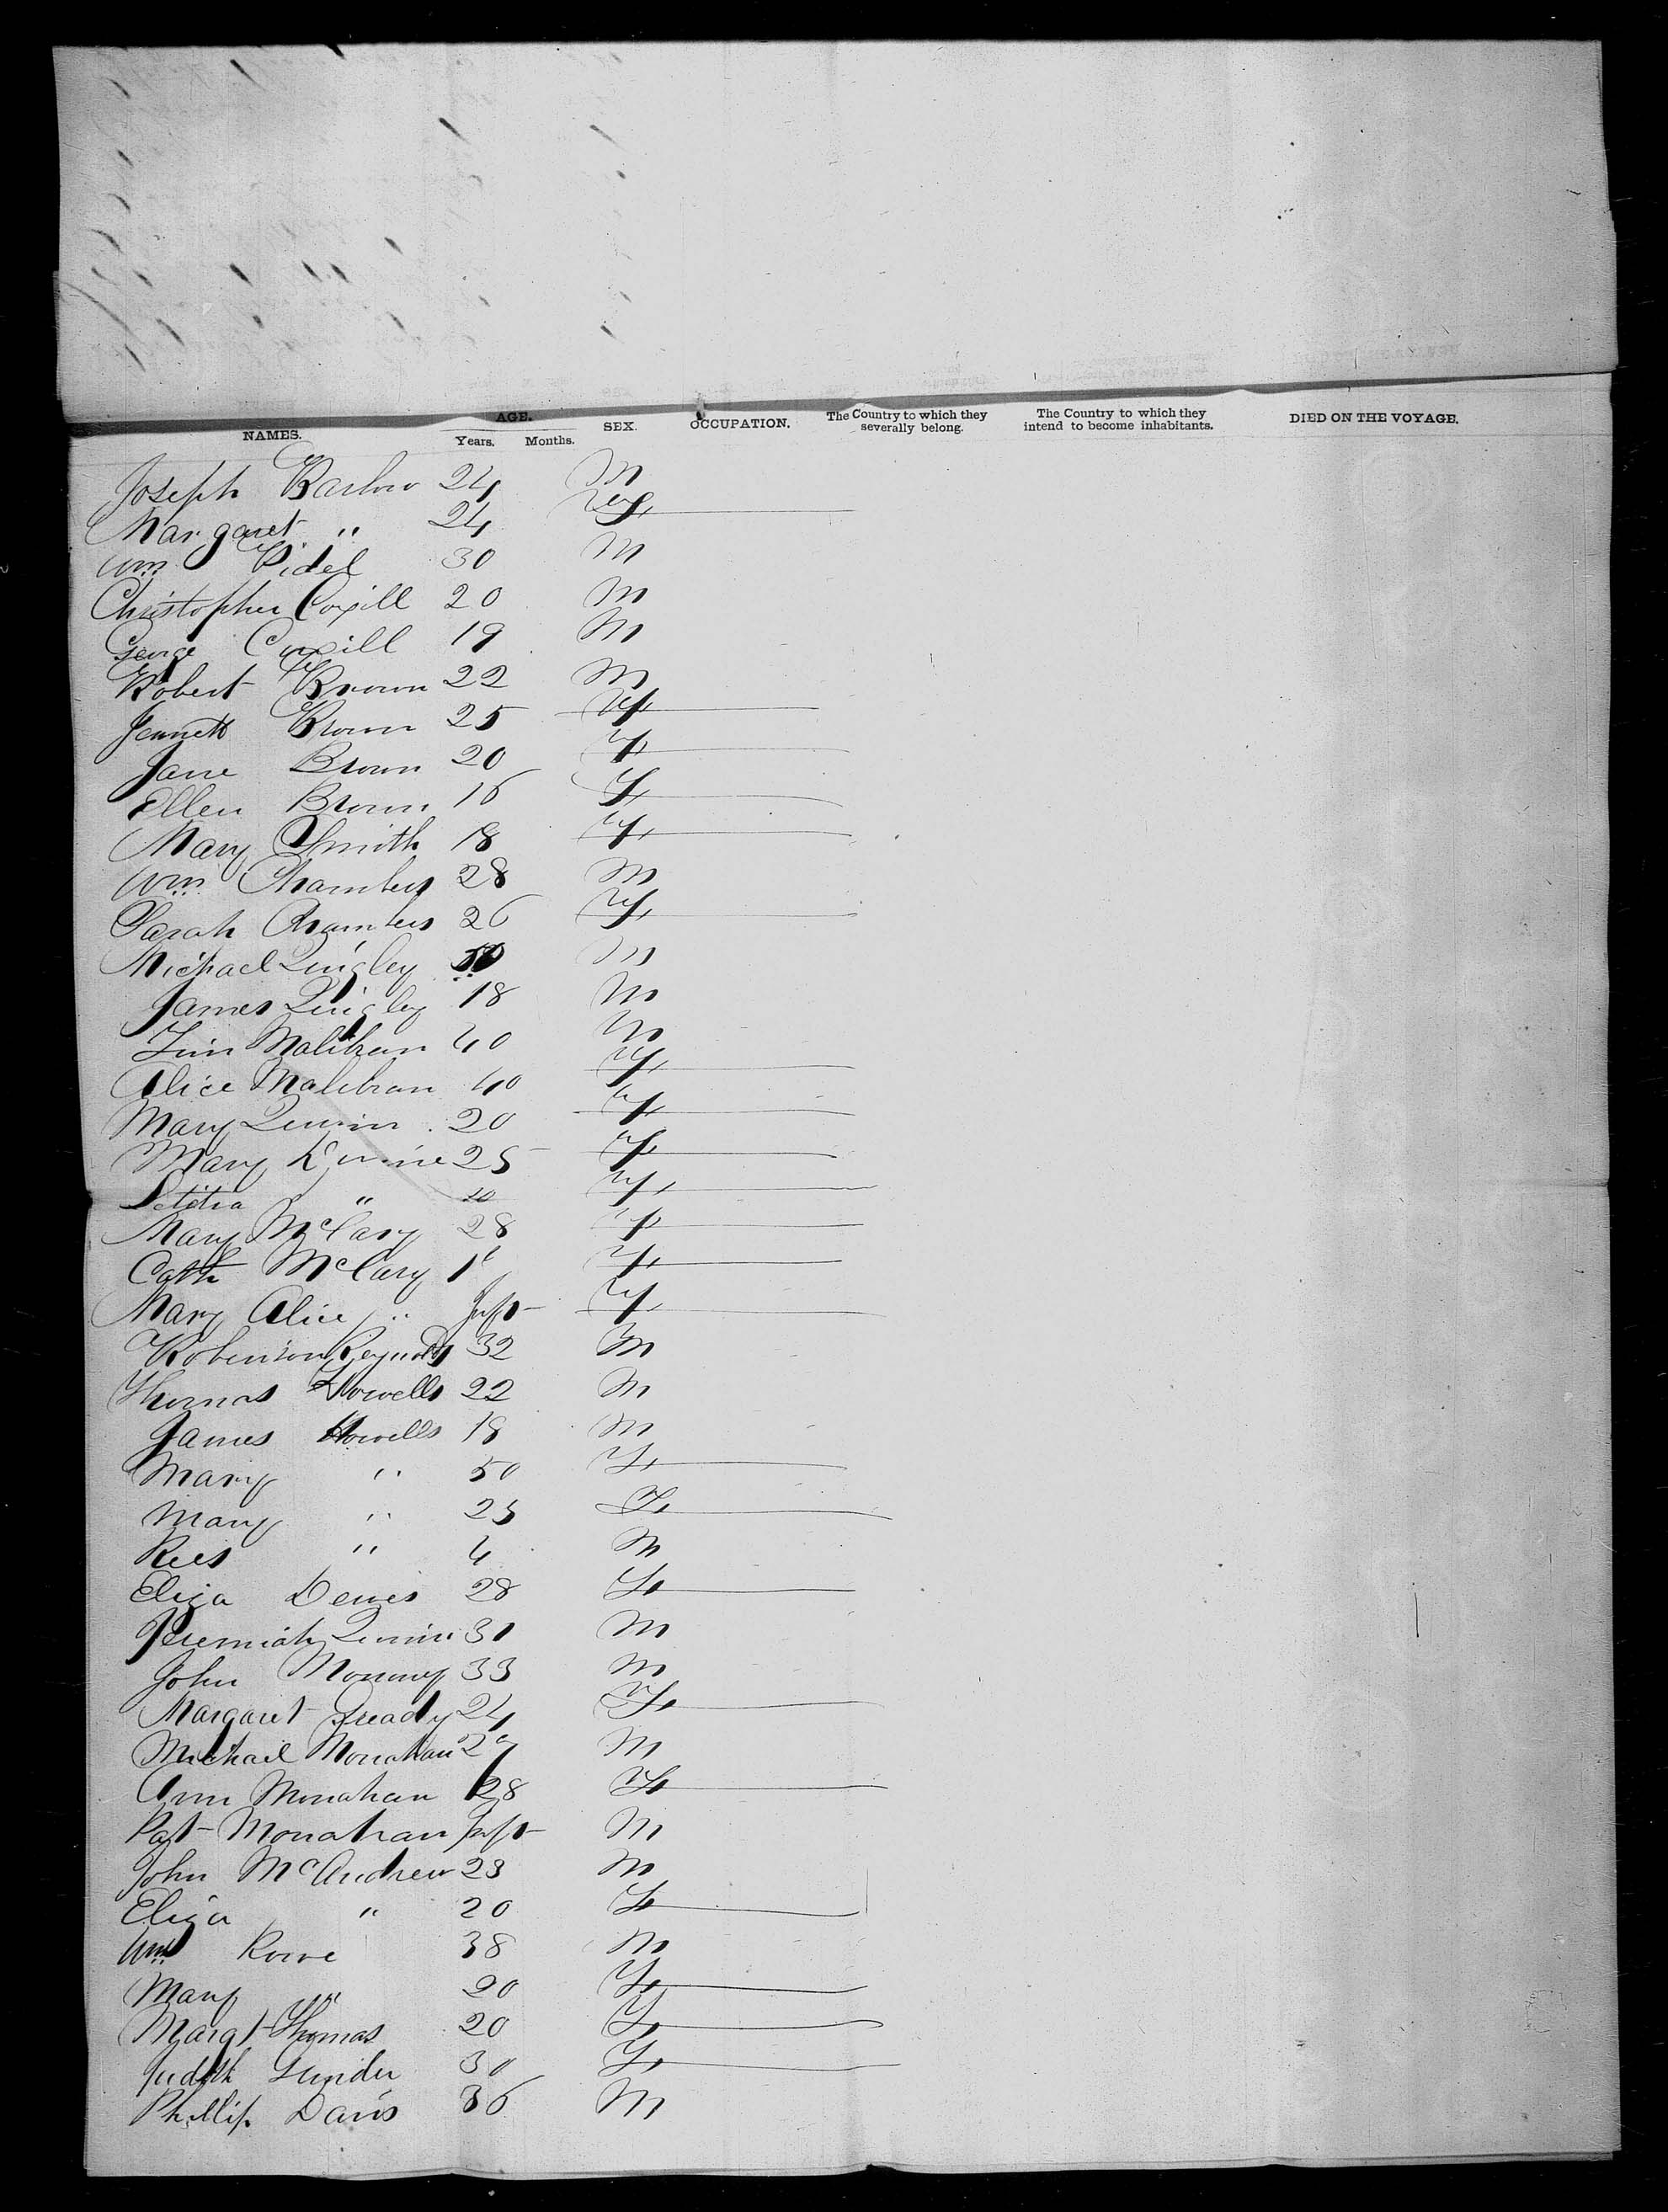 NAMES. AGE. Years. Months. SEX. OCCUPATION. The Country to which they severally belong. The Country to which they intend to become inhabitants. DIED ON THE VOYAGE.
Joseph Barlow 24 M
Margaret " 24 F
Wm Pidel 30 M
Christopher Coxill 20 M
George Coxill 19 M
Robert Brown 22 M
Jennett Brown 25 F
Jane Brown 20 F
Ellen Brown 16 F
Mary Smith 18 F
Wm Chambers 28 M
Sarah Chambers 26 F
Michael Quigley M
James Quigley 18 M
Malibran 40 M
Alice Malibran 40 F
Mary Quinn 20 F
Mary 25 F
Letitia " 20 F
Mary McCary 28 F
Cath McCary F
Mary Alice " Inft F
Robinson Reynolds 32 M
Thomas Howells 22 M
James Howells 18 M
Mary " 50 F
Mary " 25 F
Rees " 4 M
Eliza Denis 28 F
Jeremiah Quinn 31 M
John 33 M
Margaret 24 F
Michael Monahan M
Ann Monahan 28 F
Pat Monahan Inft M
John McAndrew 23 M
Eliza " 20 F
Wm Rowe 38 M
Mary " 20 F
Margt Thomas 20 F
Judith 30 F
Phillip Davis 36 M